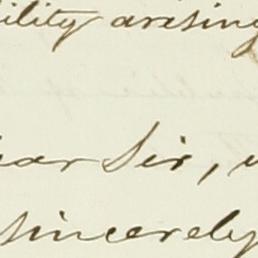 ility arising
ear Sir,
sincerely